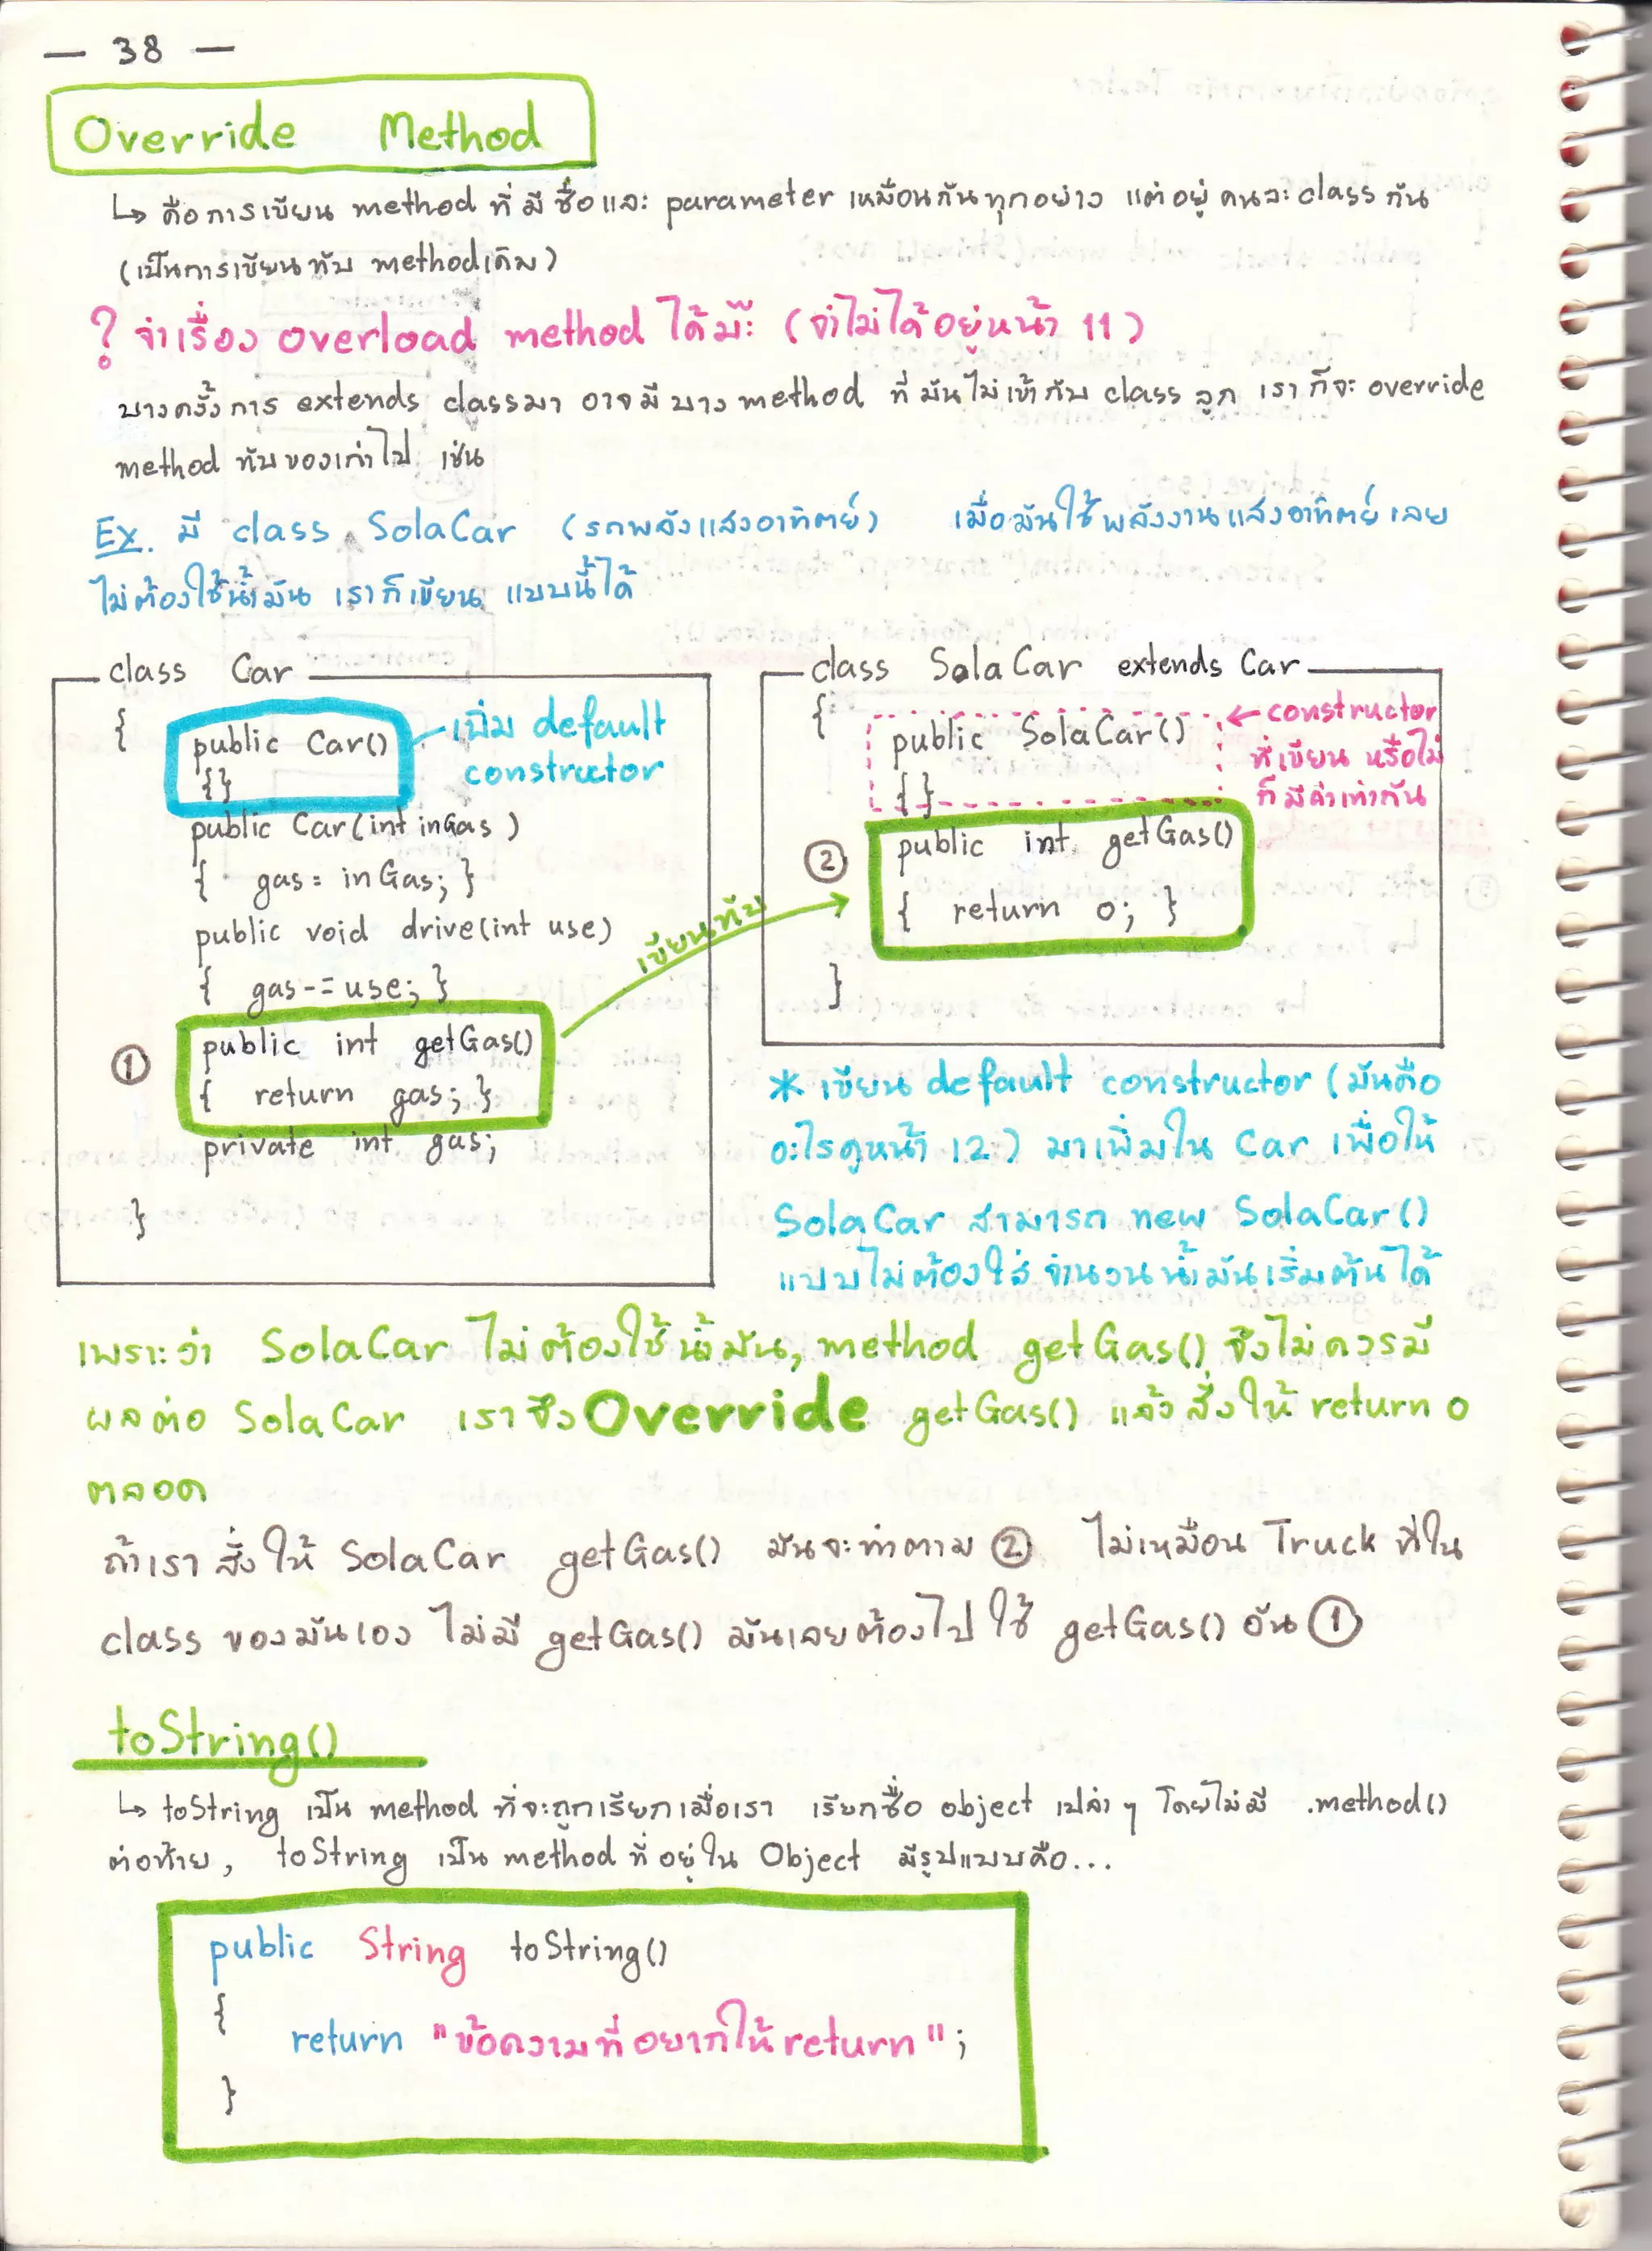 — 38 —
Override Method
↳ คือการเขียน method ที่มีชื่อและ parameter เหมือนกันทุกอย่าง แต่อยู่คนละ class กัน
(เป็นการเขียนทับ methodเดิม)
? จำเรื่อง overload method ได้มะ (จำไม่ได้อยู่หน้า 11)
บางครั้งการ extends classมา อาจมีบาง method ที่มันไม่เข้ากับ class ลูก เราก็จะ override
method ทับของเก่าไป เช่น
Ex. มี class SolaCar (รถพลังแสงอาทิตย์) เมื่อมันใช้พลังงานแสงอาทิตย์เลย
ไม่ต้องใช้น้ำมัน เราก็เขียน แบบนี้ได้
class Car
{
public Car()
{}
เพิ่ม default
constructor
public Car(int inGas)
{ gas = inGas; }
public void drive(int use)
{ gas -= use; }
① public int getGas()
{ return gas; }
private int gas;
}
เขียนทับ
class SolaCar extends Car
{
public SolaCar()
{}
← constructor
ที่เขียน หรือไม่
ก็มีค่าเท่ากัน
② public int getGas()
{ return 0; }
}
* เขียน default constructor (มันคือ
อะไรดูหน้า 12) มาเพิ่มใน Car เพื่อให้
SolaCar สามารถ new SolaCar()
แบบไม่ต้องใส่จำนวนน้ำมันเริ่มต้นได้
เพราะว่า SolaCar ไม่ต้องใช้น้ำมัน, method getGas() จึงไม่ควรมี
ผลต่อ SolaCar เราจึง Override getGas() แล้วสั่งให้ return 0
ตลอด
ถ้าเราสั่งให้ SolaCar getGas() มันจะทำตาม ② ไม่เหมือน Truck ที่ใน
class ของมันเอง ไม่มี getGas() มันเลยต้องไปใช้ getGas() อัน ①
toString()
↳ toString เป็น method ที่จะถูกเรียกเมื่อเรา เรียกชื่อ object เปล่า ๆ โดยไม่มี .method()
ต่อท้าย, toString เป็น method ที่อยู่ใน Object มีรูปแบบคือ...
public String toString()
{
return "ข้อความที่อยากให้return";
}